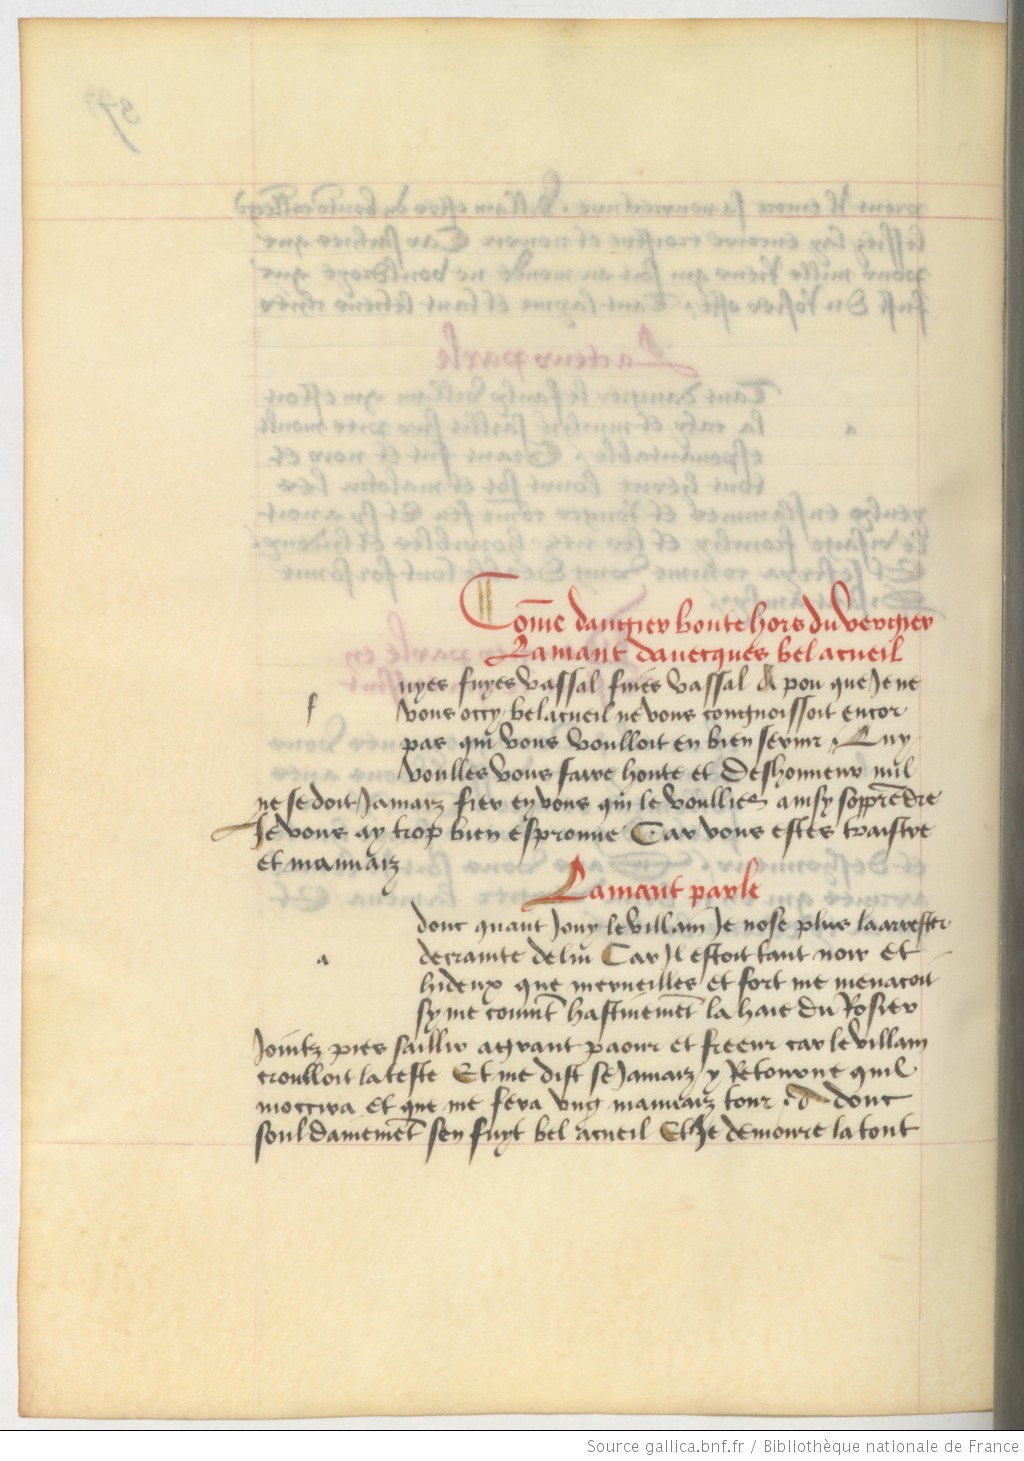 Com̄e dangier boute hors du vergier
Lamant davecques bel acueil
f
uyes fuyes vassal fuies vassal A pou que Je ne
vous occy bel acueil ne vous congnoissoit encor
pas qui vous voulloit en bien servir . Luy
voulles vous faire honte et deshonneur nul
ne se doit Jamaiz fier en vous qui le voullies ainsy soppren̄dre
Je vous ay trop bien esprouve Car vous estes traistre
et mauvaiz
Lamant parle
a
donc quant Jouy le villain Je nose plus la arrester
de crainte de lui Car Il estoit tant noir et
hideux que merveilles et fort me menacoit
sy me convint hastivemēt la haie du Rosier
Jointz pies saillir a grant paour et freeur car le villain
croulloit la teste Et me dist se Jamaiz y Retourne quil
moccira et que me fera ung mauvaiz tour . donc
souldainemēt sen fuyt bel acueil Et Je demoure la tout
Source gallica.bnf.fr / Bibliothèque nationale de France